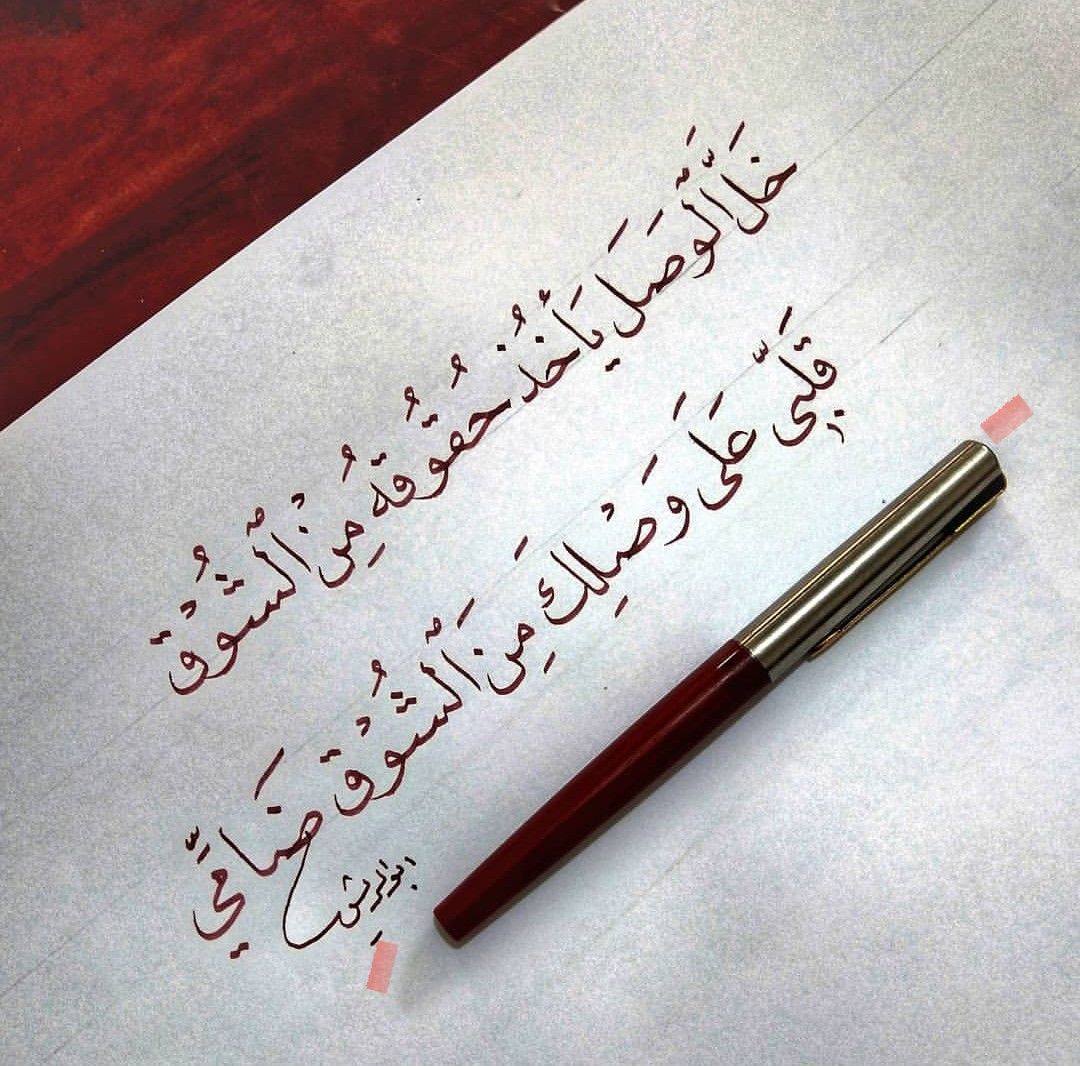 خَلَ الَّوَصَل يَأخُذ حُقُوقَه مِنْ الّشُوْق
قَلبِّى عَلَى وَصْلِك مِنَ الّشُوْق ضَامِّي
ابو الريش